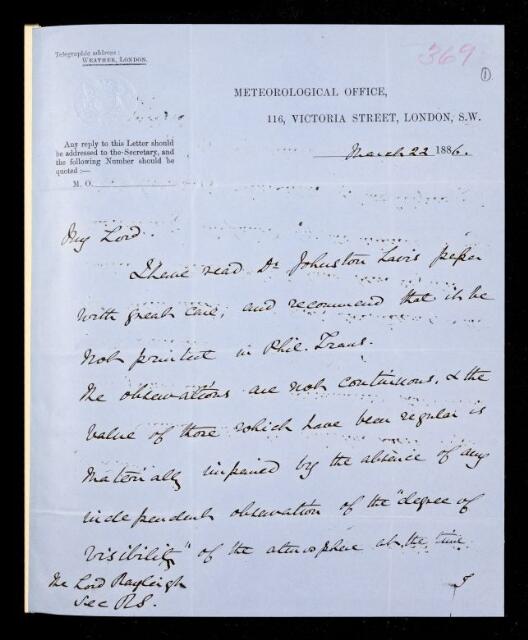 Telegraphic address:
WEATHER, LONDON.
369
1
METEOROLOGICAL OFFICE,
116, VICTORIA STREET, LONDON, S.W.
March 22 1886.
Any reply to this Letter should
be addressed to the Secretary, and
the following Number should be
quoted:—
M. O.
My Lord.
I have read Dr Johnston Lavis paper
with great care, and recommend that it be
not printed in Phil. Trans.
The observations are not continuous, & the
value of those which have been regular is
materially impaired by the absence of any
independent observation of the "degree of
visibility" of the atmosphere at the time.
The Lord Rayleigh
Sec RS.